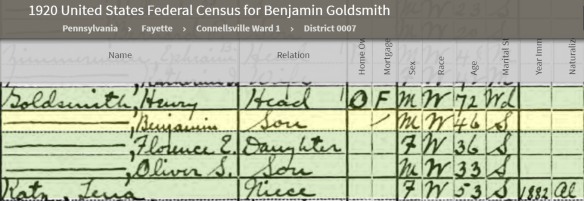 1920 United States Federal Census for Benjamin Goldsmith
Pennsylvania › Fayette › Connellsville Ward 1 › District 0007
Name Relation Home Ow Mortgage Sex Race Age Marital St Year Imm Naturaliz
Goldsmith, Henry Head O F M W 72 Wd
———, Benjamin Son M W 46 S
———, Florence E. Daughter F W 36 S
———, Oliver S. Son M W 33 S
Katz, Tena Niece F W 53 S 1882 Al